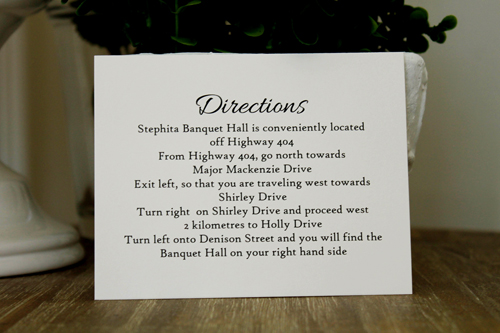 Directions
Stephita Banquet Hall is conveniently located
off Highway 404
From Highway 404, go north towards
Major Mackenzie Drive
Exit left, so that you are traveling west towards
Shirley Drive
Turn right on Shirley Drive and proceed west
2 kilometres to Holly Drive
Turn left onto Denison Street and you will find the
Banquet Hall on your right hand side